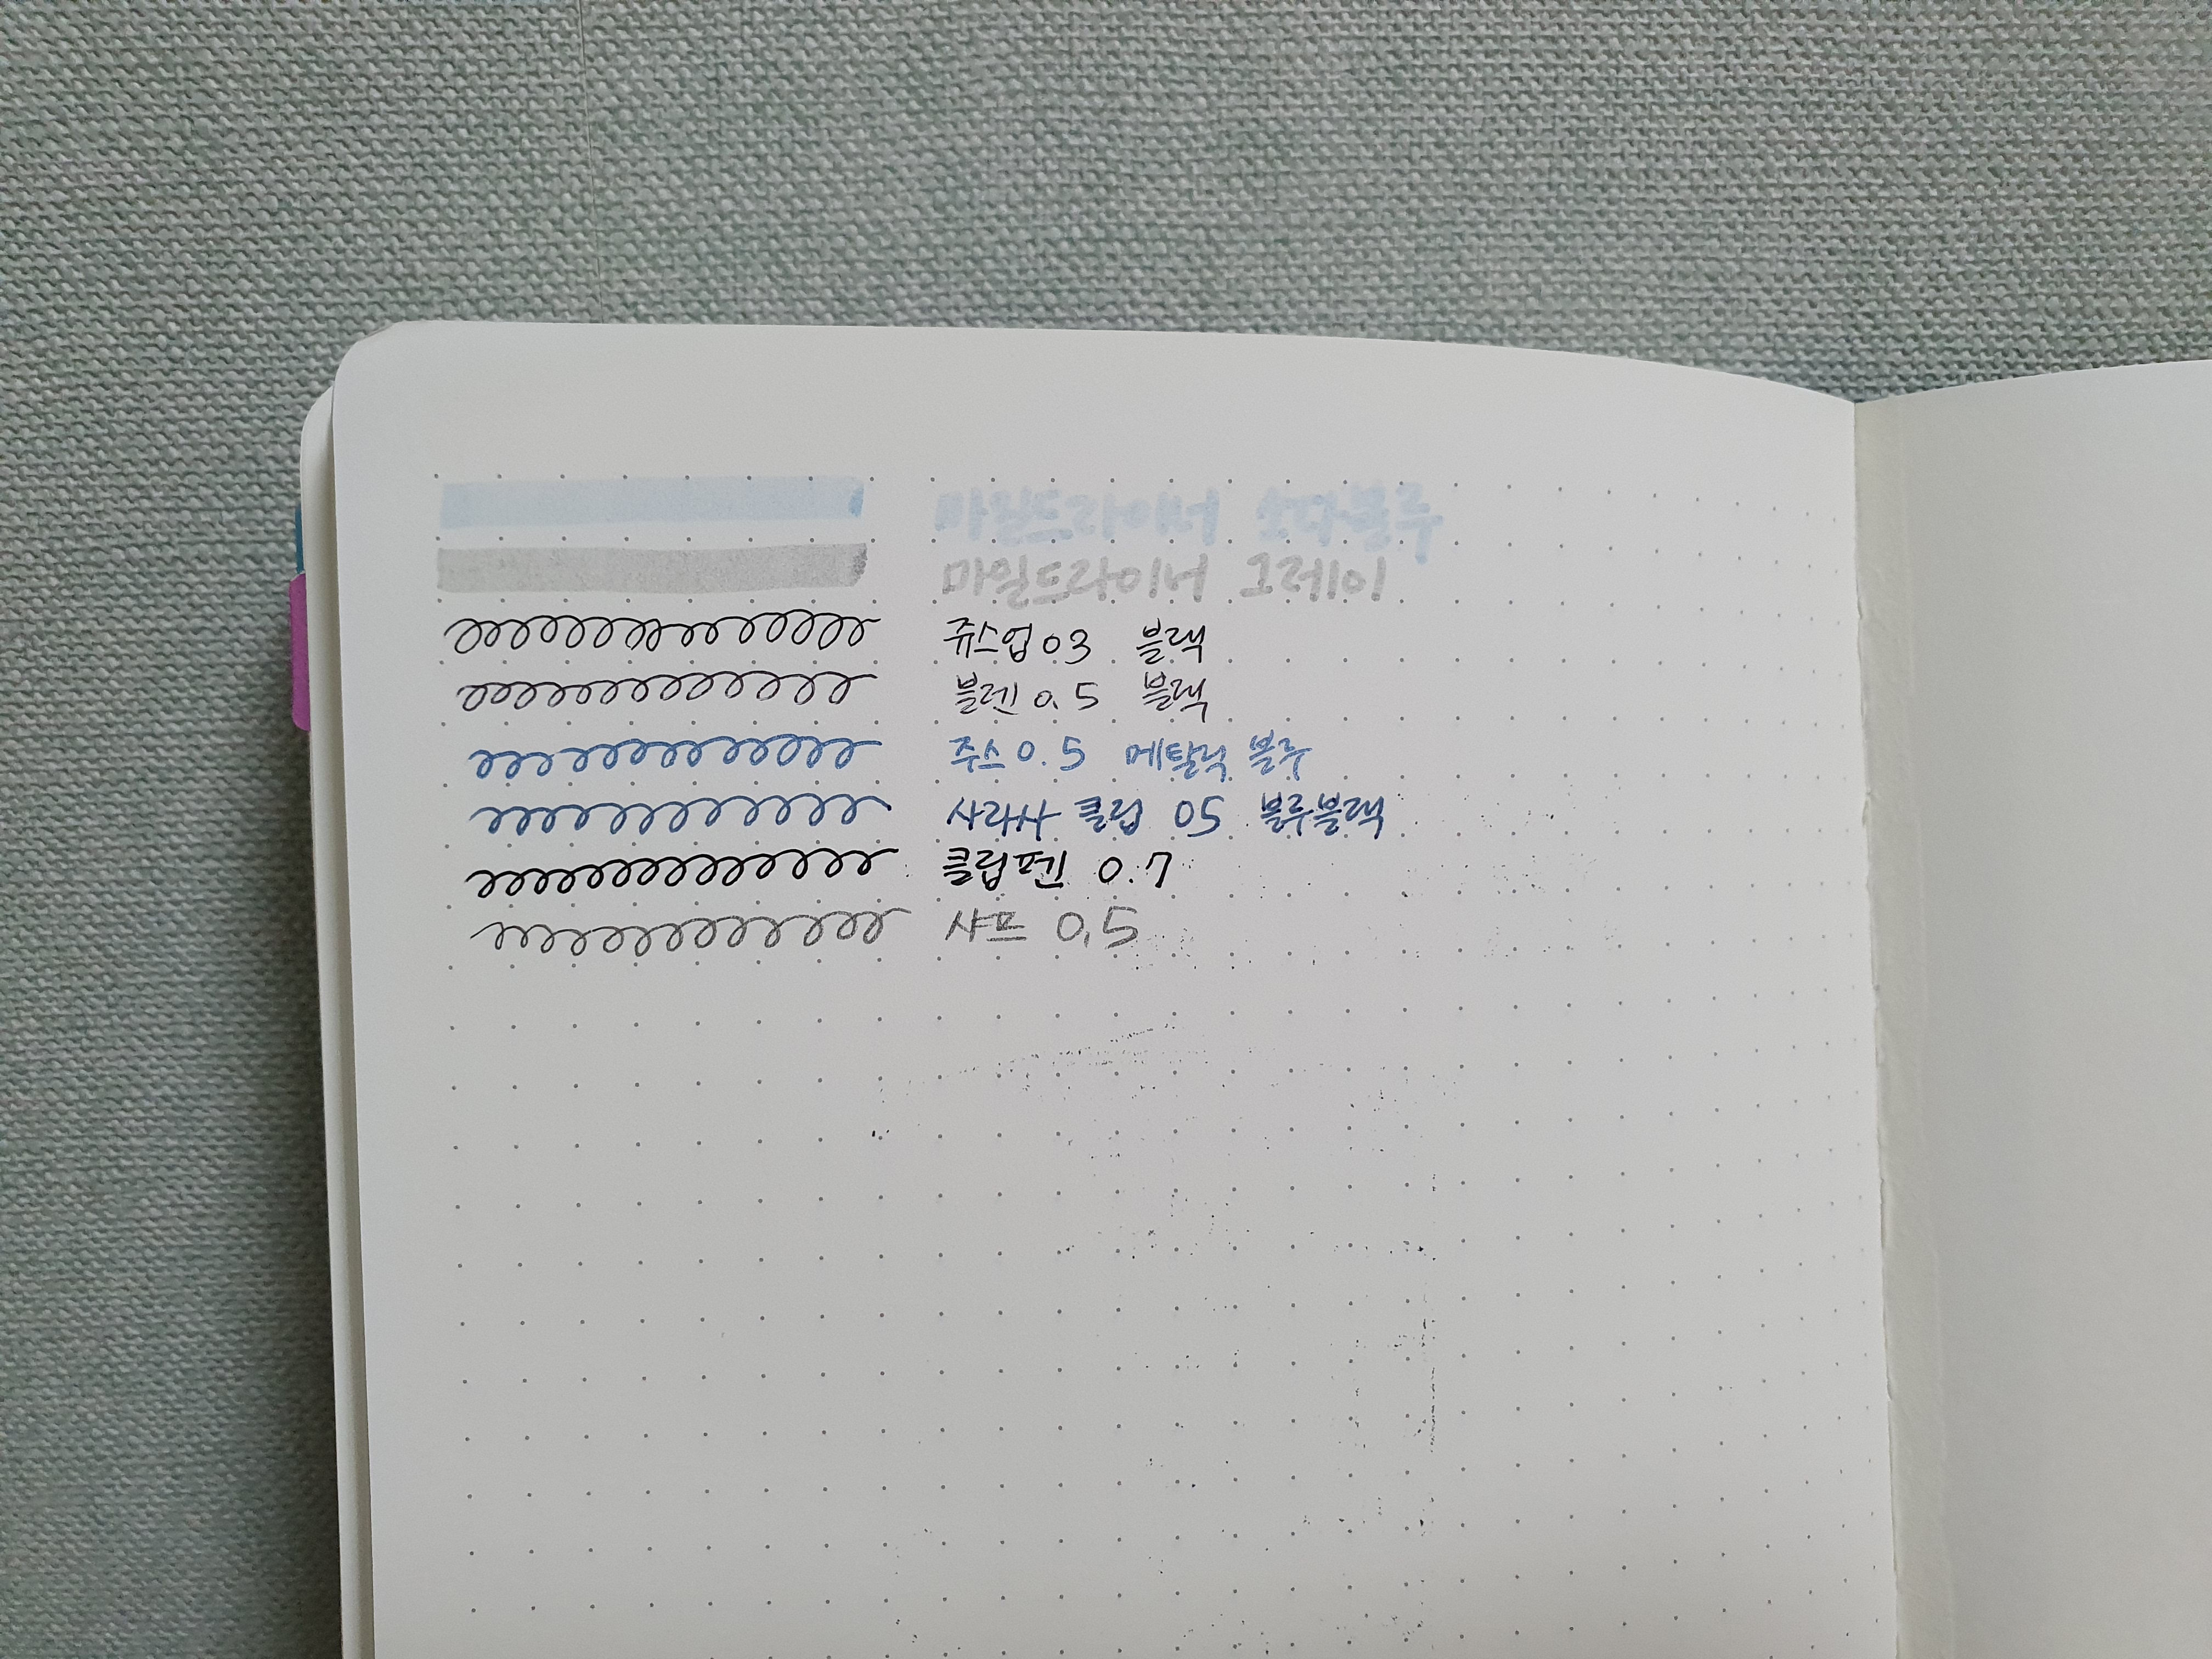 마일드라이너 소다블루
마일드라이너 그레이
쥬스업 03 블랙
블렌 0.5 블랙
주스 0.5 메탈릭 블루
사라사 클립 05 블루블랙
클립펜 0.7
샤프 0.5